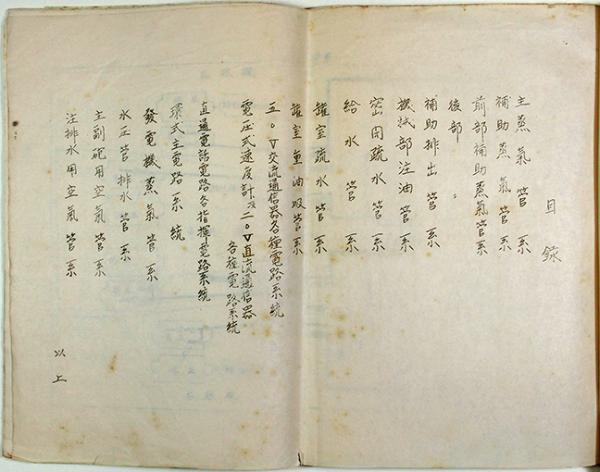 目録
主蒸氣管系
補助蒸氣管系
前部補助蒸氣管系
後部〃。
補助排出管系
機械部注油管系
密固疏水管系
給水管系
罐室疏水管系
罐室重油吸管系
五〇▽交流通信器各種電路系統
電圧式速度計及二〇▽直流通信器
各種電路系統
直通電話電路各指揮電路系統
環式主電路系統
發電機蒸氣管系
水圧管排水管系
主副砲用空氣管系
注排水用空氣管系
以上